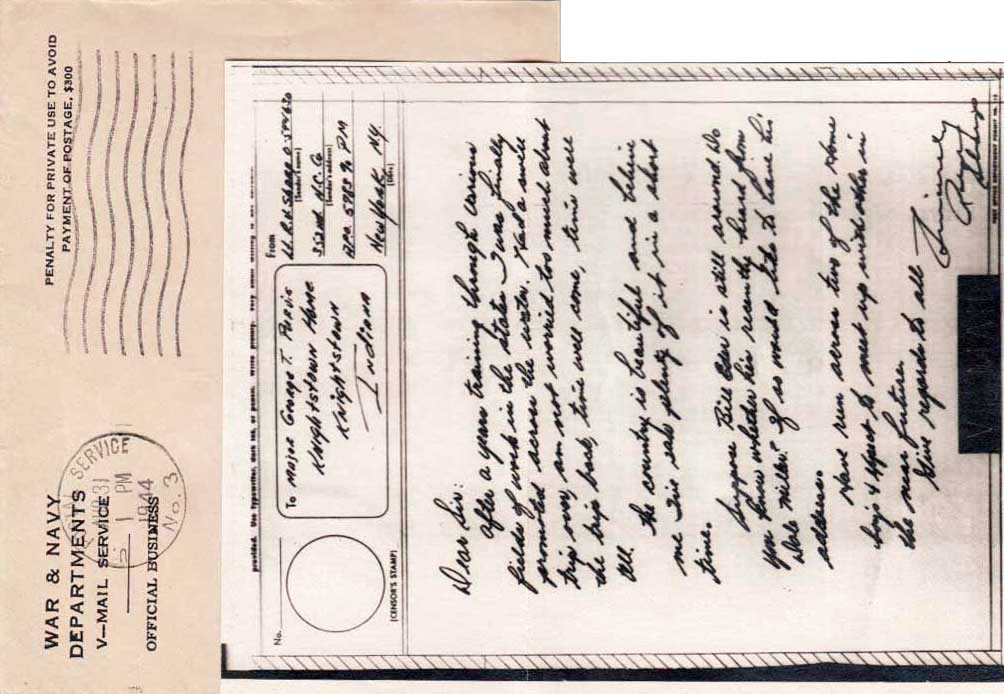 WAR & NAVY
DEPARTMENTS
V—MAIL SERVICE
OFFICIAL BUSINESS
PENALTY FOR PRIVATE USE TO AVOID
PAYMENT OF POSTAGE, $300
SERVICE
AUG 31
1 PM
1944
No. 3
No.
(CENSOR'S STAMP)
To Major George T. Purvis
Knightstown Home
Knightstown
Indiana
From
Lt. R.H.
(Sender's name)
552nd A.C.G.
(Sender's address)
APO 5789 % PM
New York NY.
(Date)
Dear Sir:
After a years training through various
fields of work in the states I was finally
promoted across the water. Had a swell
trip over, am not worried too much about
the trip back, time will come, time will
tell.
The country is beautiful and believe
me I've seen plenty of it in a short
time.
Suppose Bill is still around. Do
you know whether he's recently heard from
Dale Miller? If so would like to have his
address.
Have run across two of the Home
boys & expect to meet up with other in
the near future.
Give regards to all
Sincerely